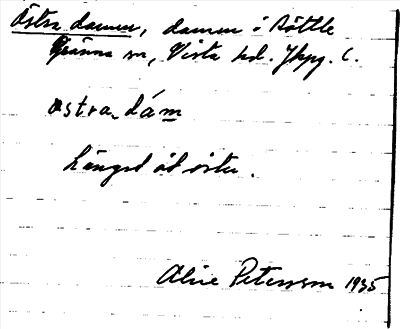 Östra dammen, dammen i Röttle
Gränna sn, Vista hd. Jkpg. l.
østra dám
Längst åt öster.
Alice Petersson 1935